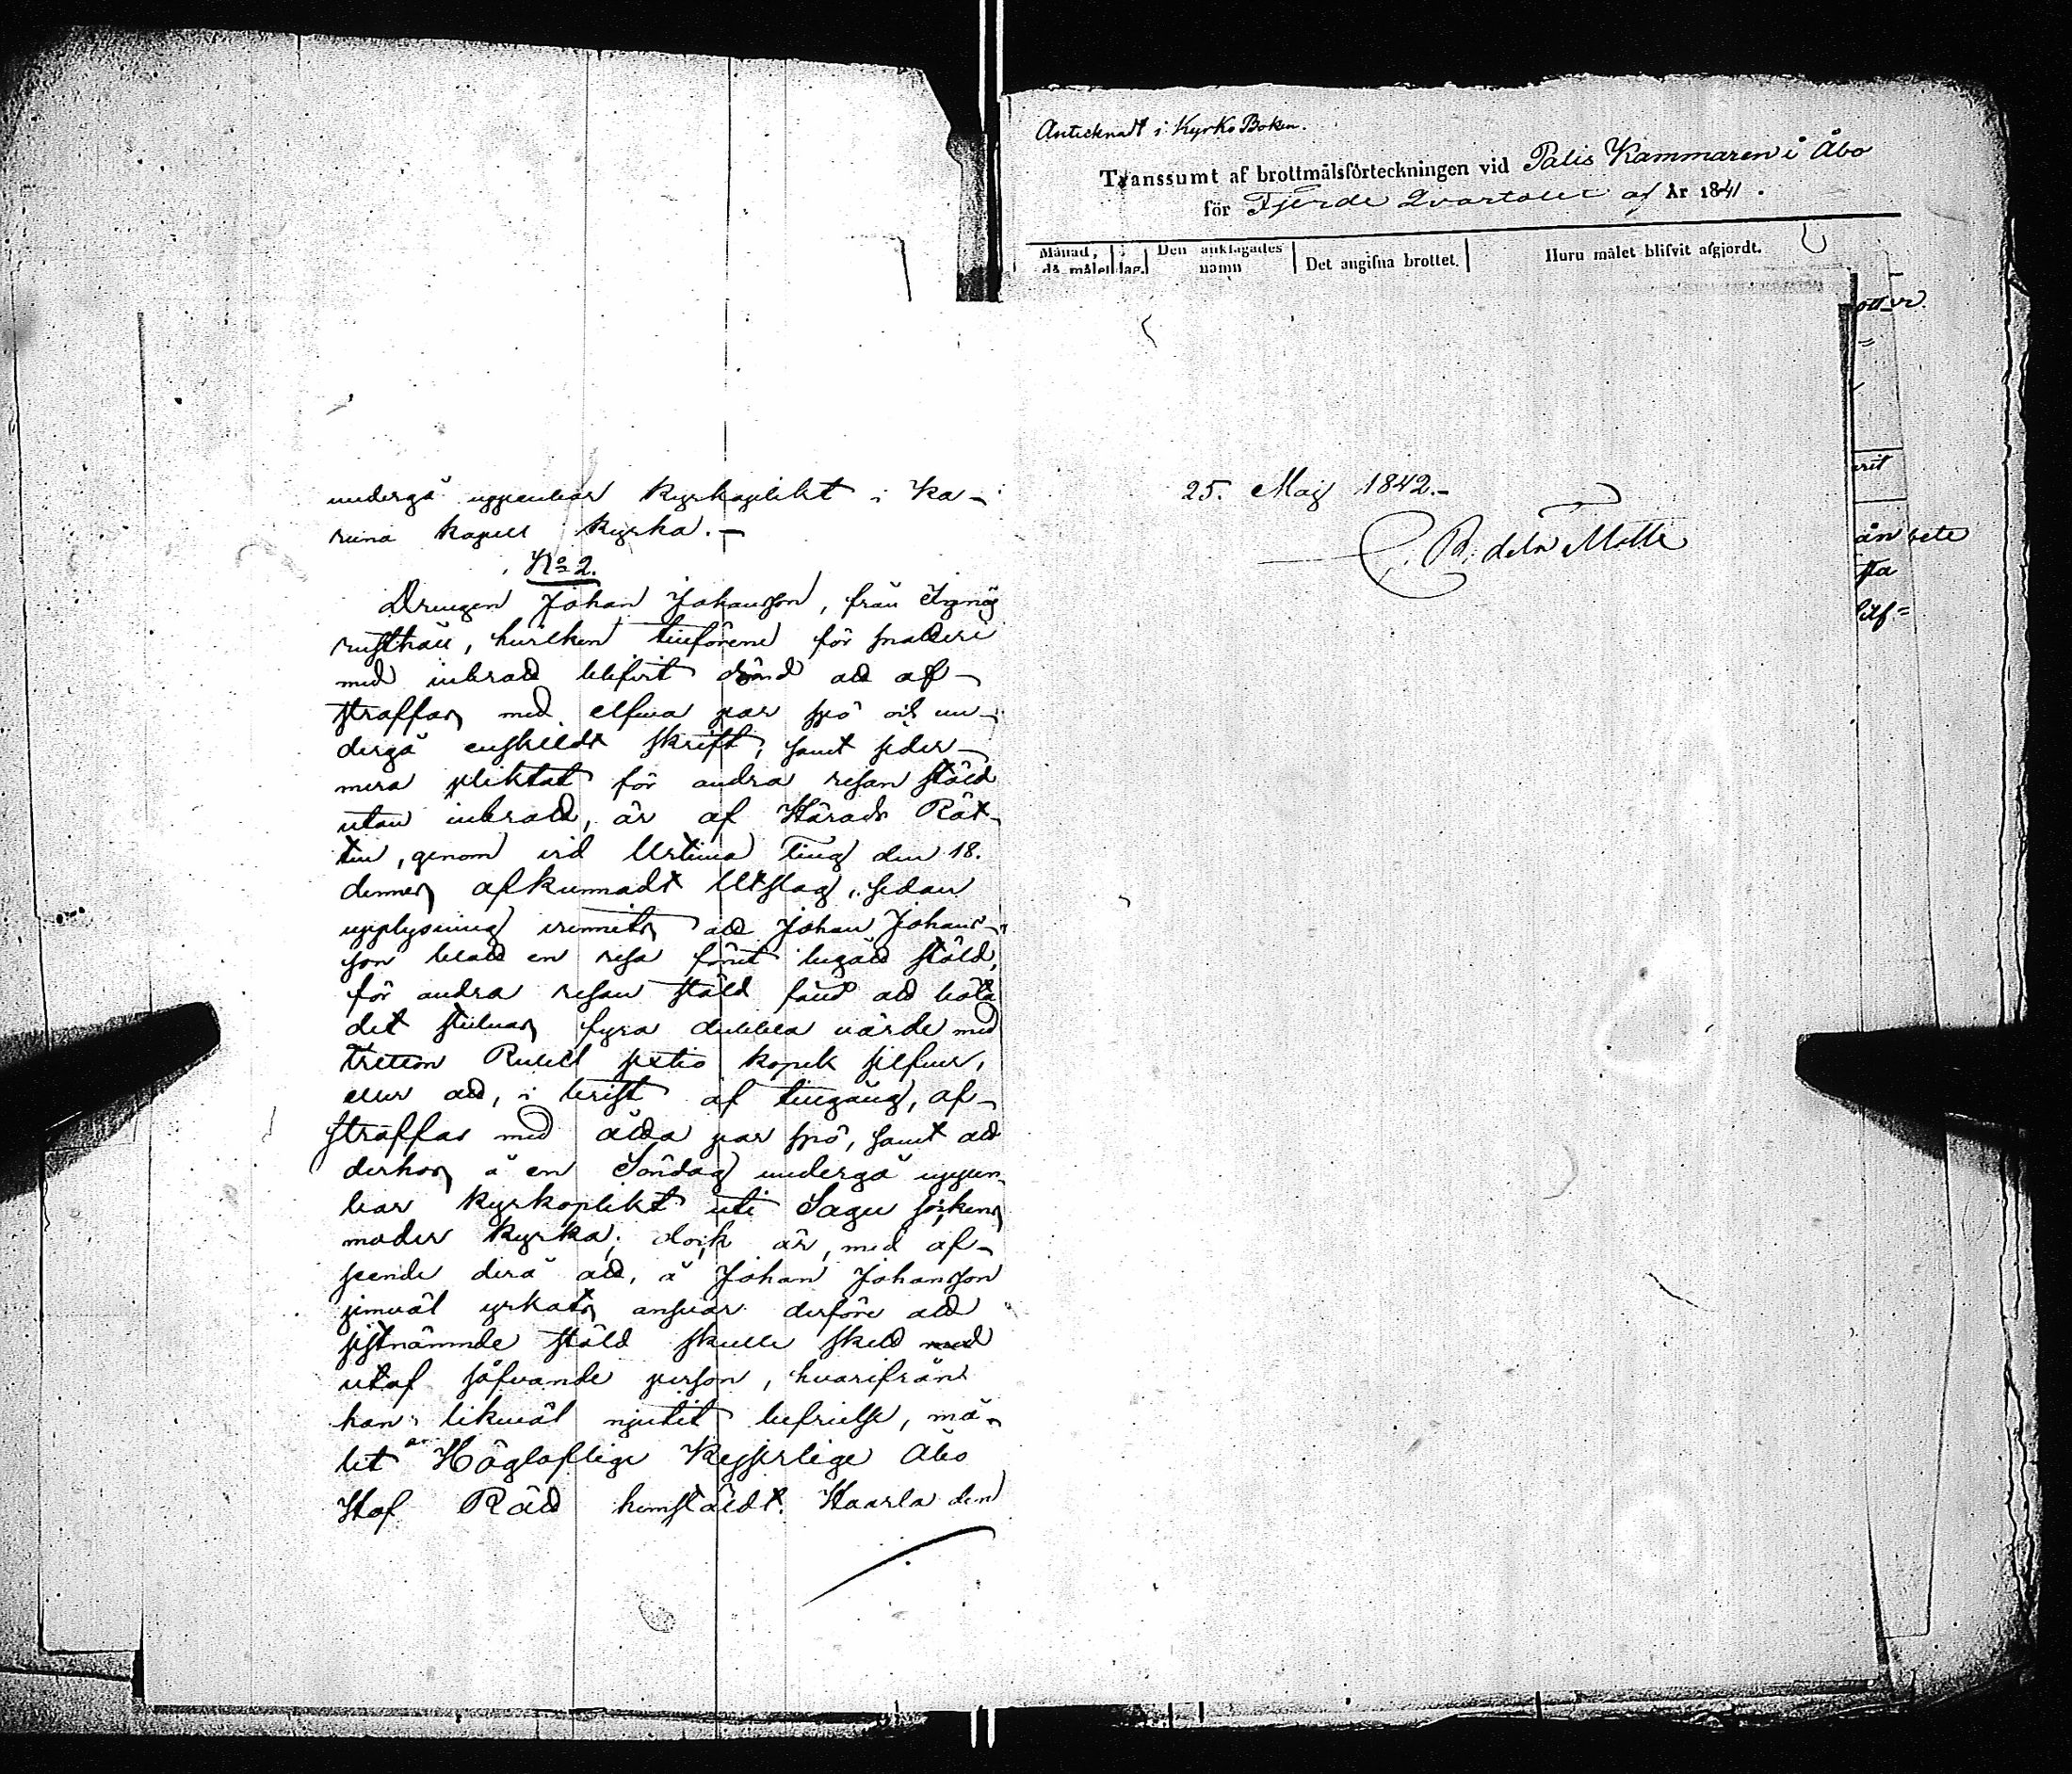 undergå uppenbar Kyrkoplikt i Ka-
runa kapell kyrka.-
No 2.
Drengen Johan Johansson, från
rusthåll, hvilken tillförene för snatteri
med inbrott blifvit dömd att af-
straffas med elfva par spö och un-
dergå enskildt skrift, samt seder-
mera pliktat för andra resan stöld
utan inbrott, är af Härads Rät-
ten, genom vid Urtima Ting den 18.
dennes afkunnadt Utslag, sedan
upplysning vunnits att Johan Johans-
son blott en resa förut begått stöld,
för andra resan stöld fäld att böta
det stulnas fyra dubbla värde med
tretton Rubel sextio kopek silfver,
eller att, i brist af tillgång, af-
straffas med åtta par spö, samt att
derhos å en Söndag undergå uppen-
bar kyrkoplikt uti Sagu sockens
moder kyrka; dock är, med af-
seende derå att, å Johan Johansson
jemväl yrkats ansvar derföre att
sistnämnde stöld skulle skett
utaf sofvande person, hvarifrån
han likväl njutit befrielse, må-
let Högloflige Kejserlige Åbo
Hof Rätt hemstäldt. Haarla den
Antecknadt i Kyrko Boken.
Transsumt af brottmålsförteckningen vid Polis Kammaren i Åbo
för Fjerde Qvartalet af År 1841.
Månad, då målet dag. Den anklagades namn Det angifna brottet. Huru målet blifvit afgjordt.
25. Maj 1842.-
de la Motte